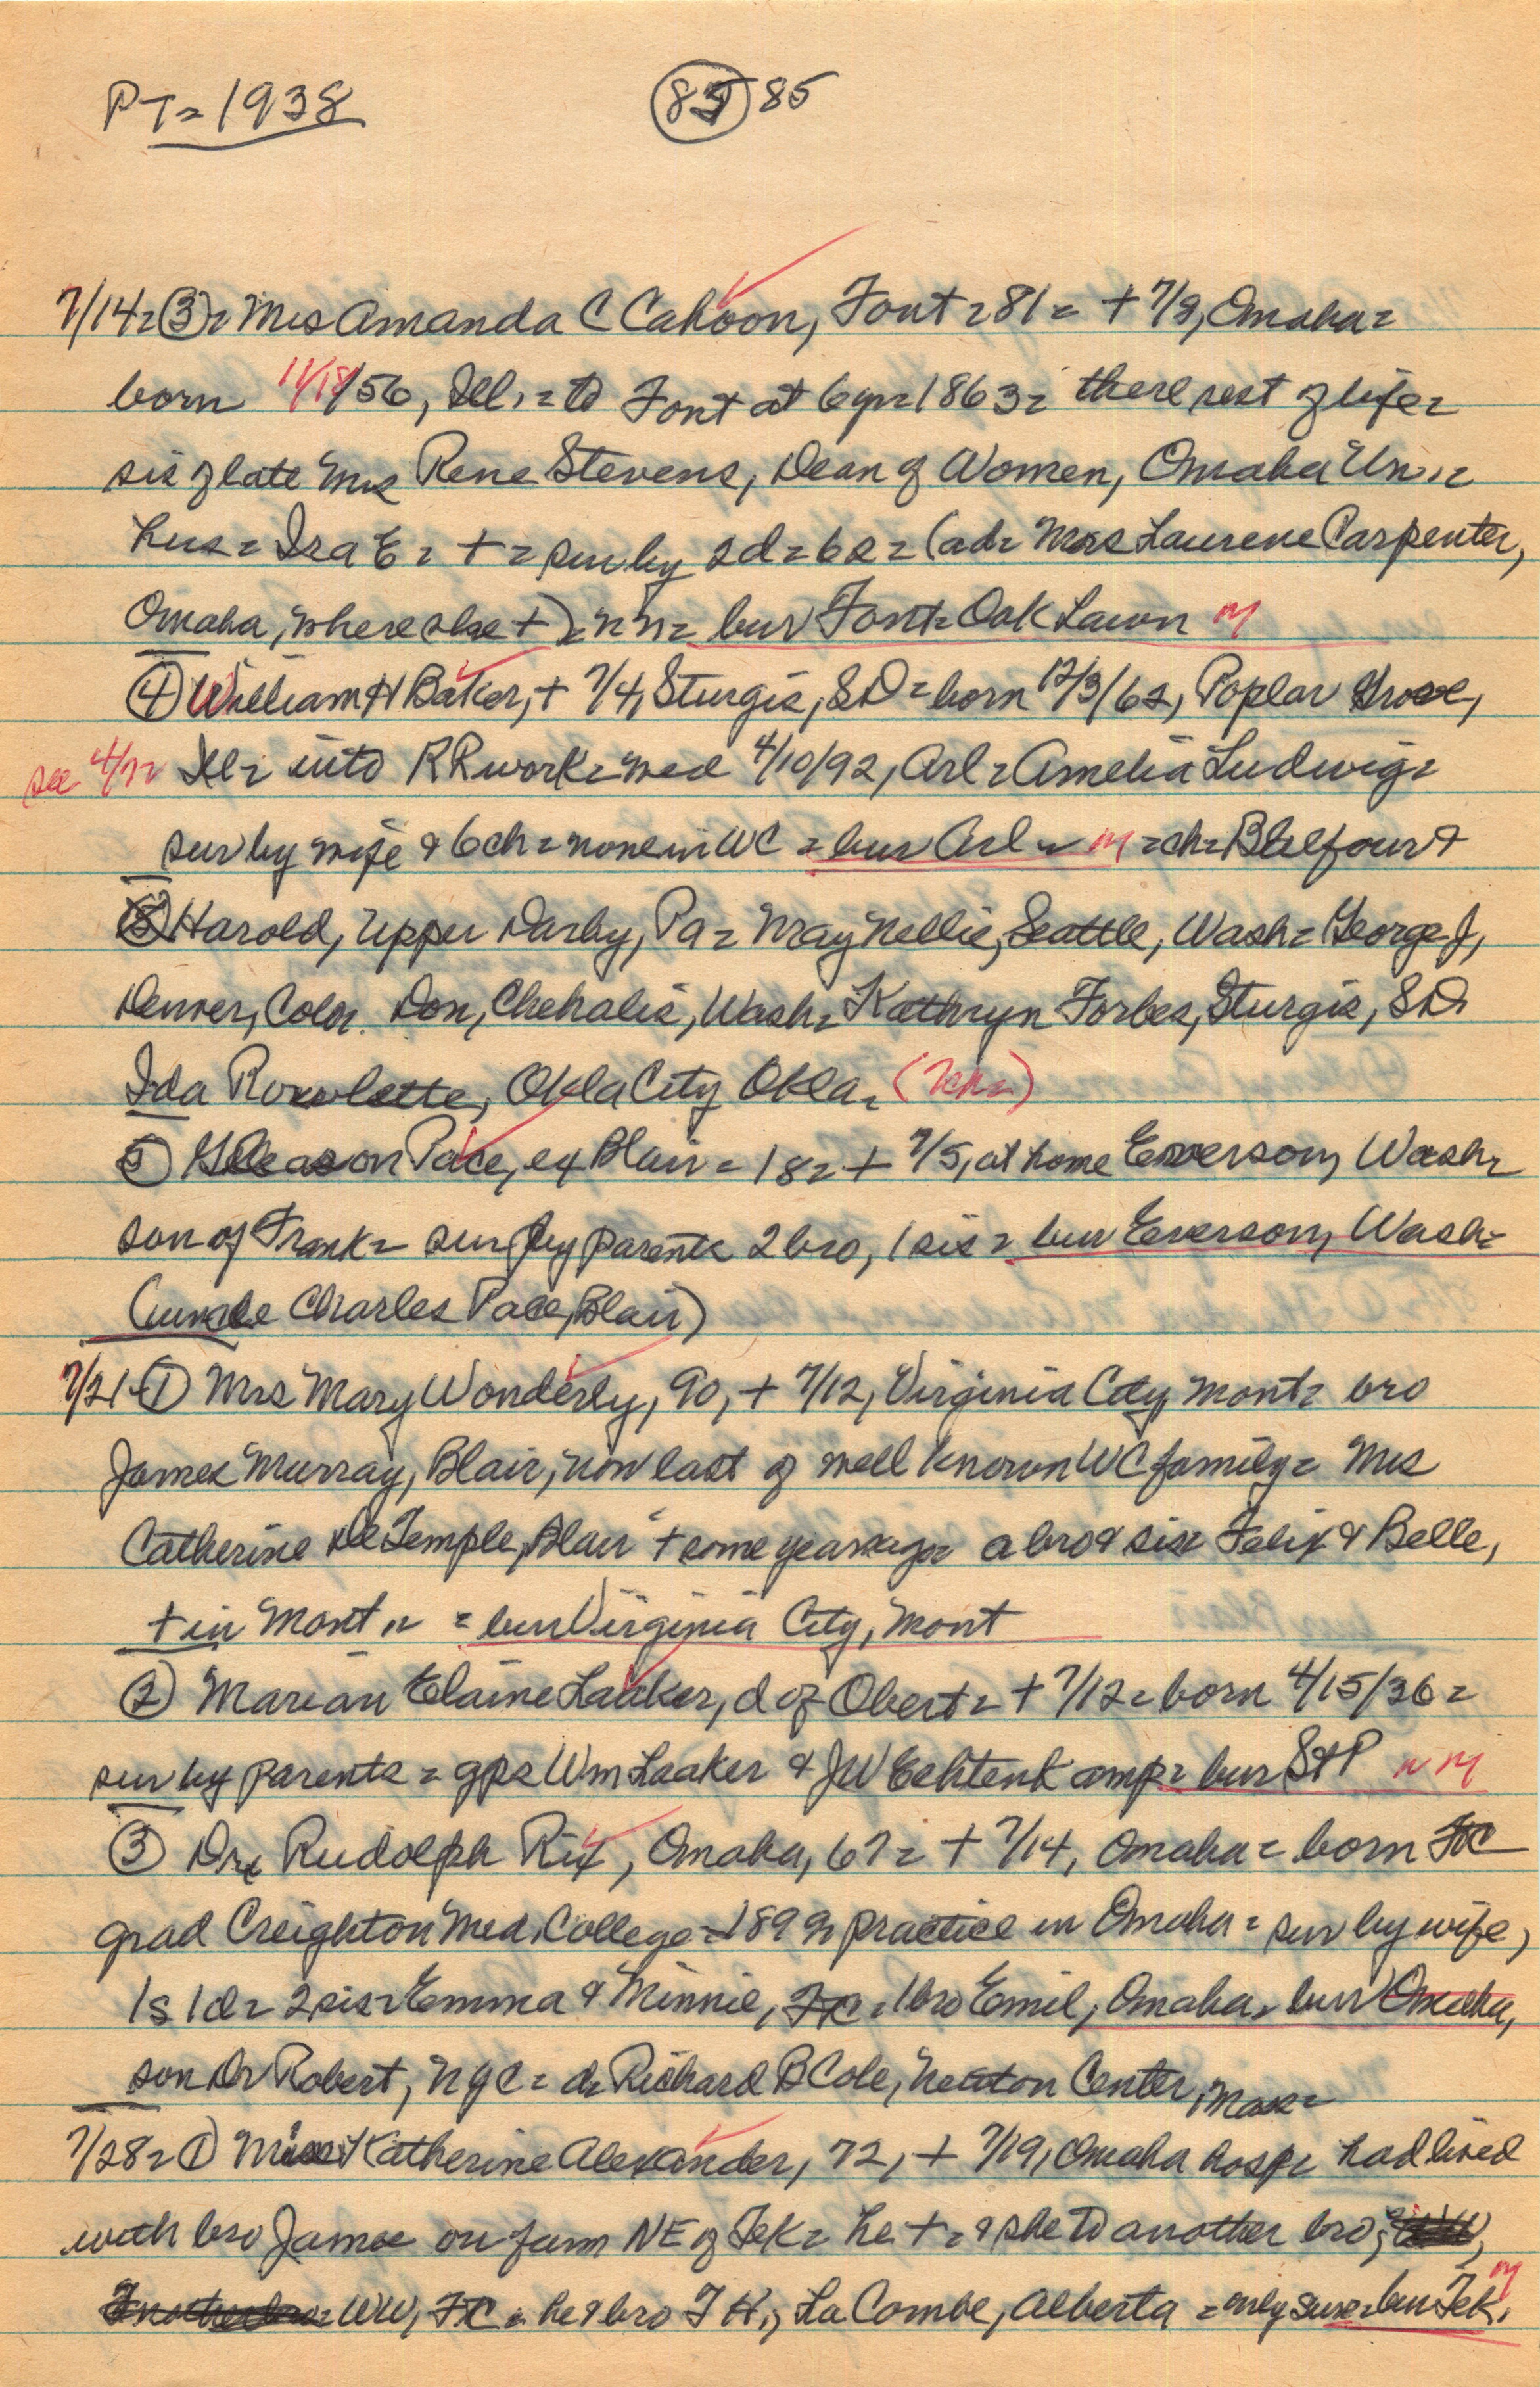 PT = 1938 (85) 85
7/14 = (3) = Mrs Amanda C Cahoon, Font = 81 = + 7/8, Omaha =
born 11/18/56, Ill. = to Font at 6 yr = 1863 = there rest of life =
sis of late Mrs Rene Stevens, Dean of Women, Omaha Un. =
hus = Ira E = + = sur by 2d = 6s = (ad = Mrs Laurene Carpenter,
Omaha, where she +) = nn = bur Font = Oak Lawn m
(4) William H Baker, + 7/4, Sturgis, SD = born 12/3/62, Poplar Grove,
see 4/7 = Ill = into RR work = wed 4/10/92, Arl = Amelia Ludwig =
sur by wife & 6 ch = none in WC = bur Arl = m = ch = Blelfour +
Harold, Upper Darby, Pa = May Nellie, Seattle, Wash = George J,
Denver, Color. Don, Chehalis, Wash = Kathryn Forbes, Sturgis, SD
Ida Rowlette, Okla City Okla =
(5) Gleason Pace, ex Blair = 18 = + 7/5, at home Everson, Wash =
son of Frank = sur by parents 2 bro, 1 sis = bur Everson, Wash =
(uncle Charles Pace, Blair)
7/21 = (1) Mrs Mary Wonderly, 90, + 7/12, Virginia City, Mont = bro
James Murray, Blair, now last of well known WC family = Mrs
Catherine DeTemple, Blair + some years ago = a bro & sis = Felix & Belle,
+ in Mont = = bur Virginia City, Mont
(2) Marian Elaine Laaker, d of Obert = + 7/12 = born 4/15/36 =
sur by parents = gps Wm Laaker & JW Echtenkamp = bur St P = m
(3) Dr. Rudolph Rix, Omaha, 67 = + 7/14, Omaha = born FC
grad Creighton Med. College = 1899 practice in Omaha = sur by wife,
1s 1d = 2 sis = Emma & Minnie, FC = 1 bro Emil, Omaha = bur Omaha,
son Dr Robert, NYC = d = Richard B Cole, Newton Center, Mass =
7/28 = (1) Miss Katherine Alexander, 72, + 7/19, Omaha hosp = had lived
with bro James on farm NE of Tek = he + = & she to another bro,
WW, FC = he & bro J H., LaCombe, Alberta = only surv = bur Tek. m